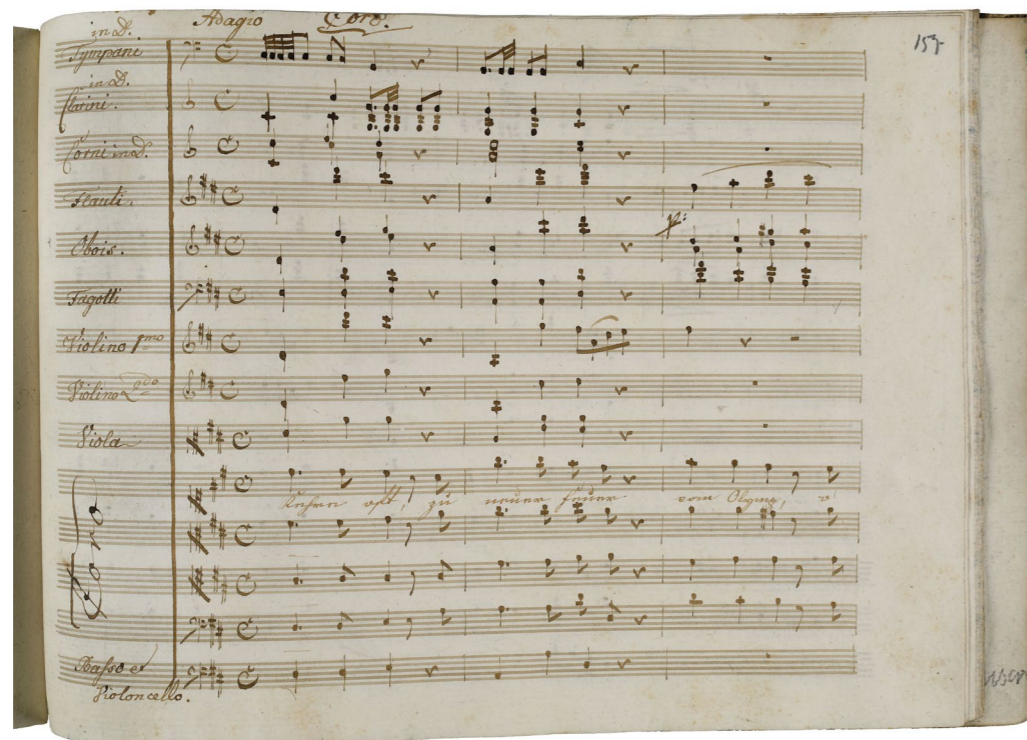 Adagio Coro.
157
in D.
Tympani
in D.
Clarini.
Corni in D.
Flauti.
p:
Obois.
Fagotti
Violino 1mo
Violino 2do
Viola
Coro
Kehren oft, zu neuer feuer vom Olymp, o
Basso e
Violoncello.